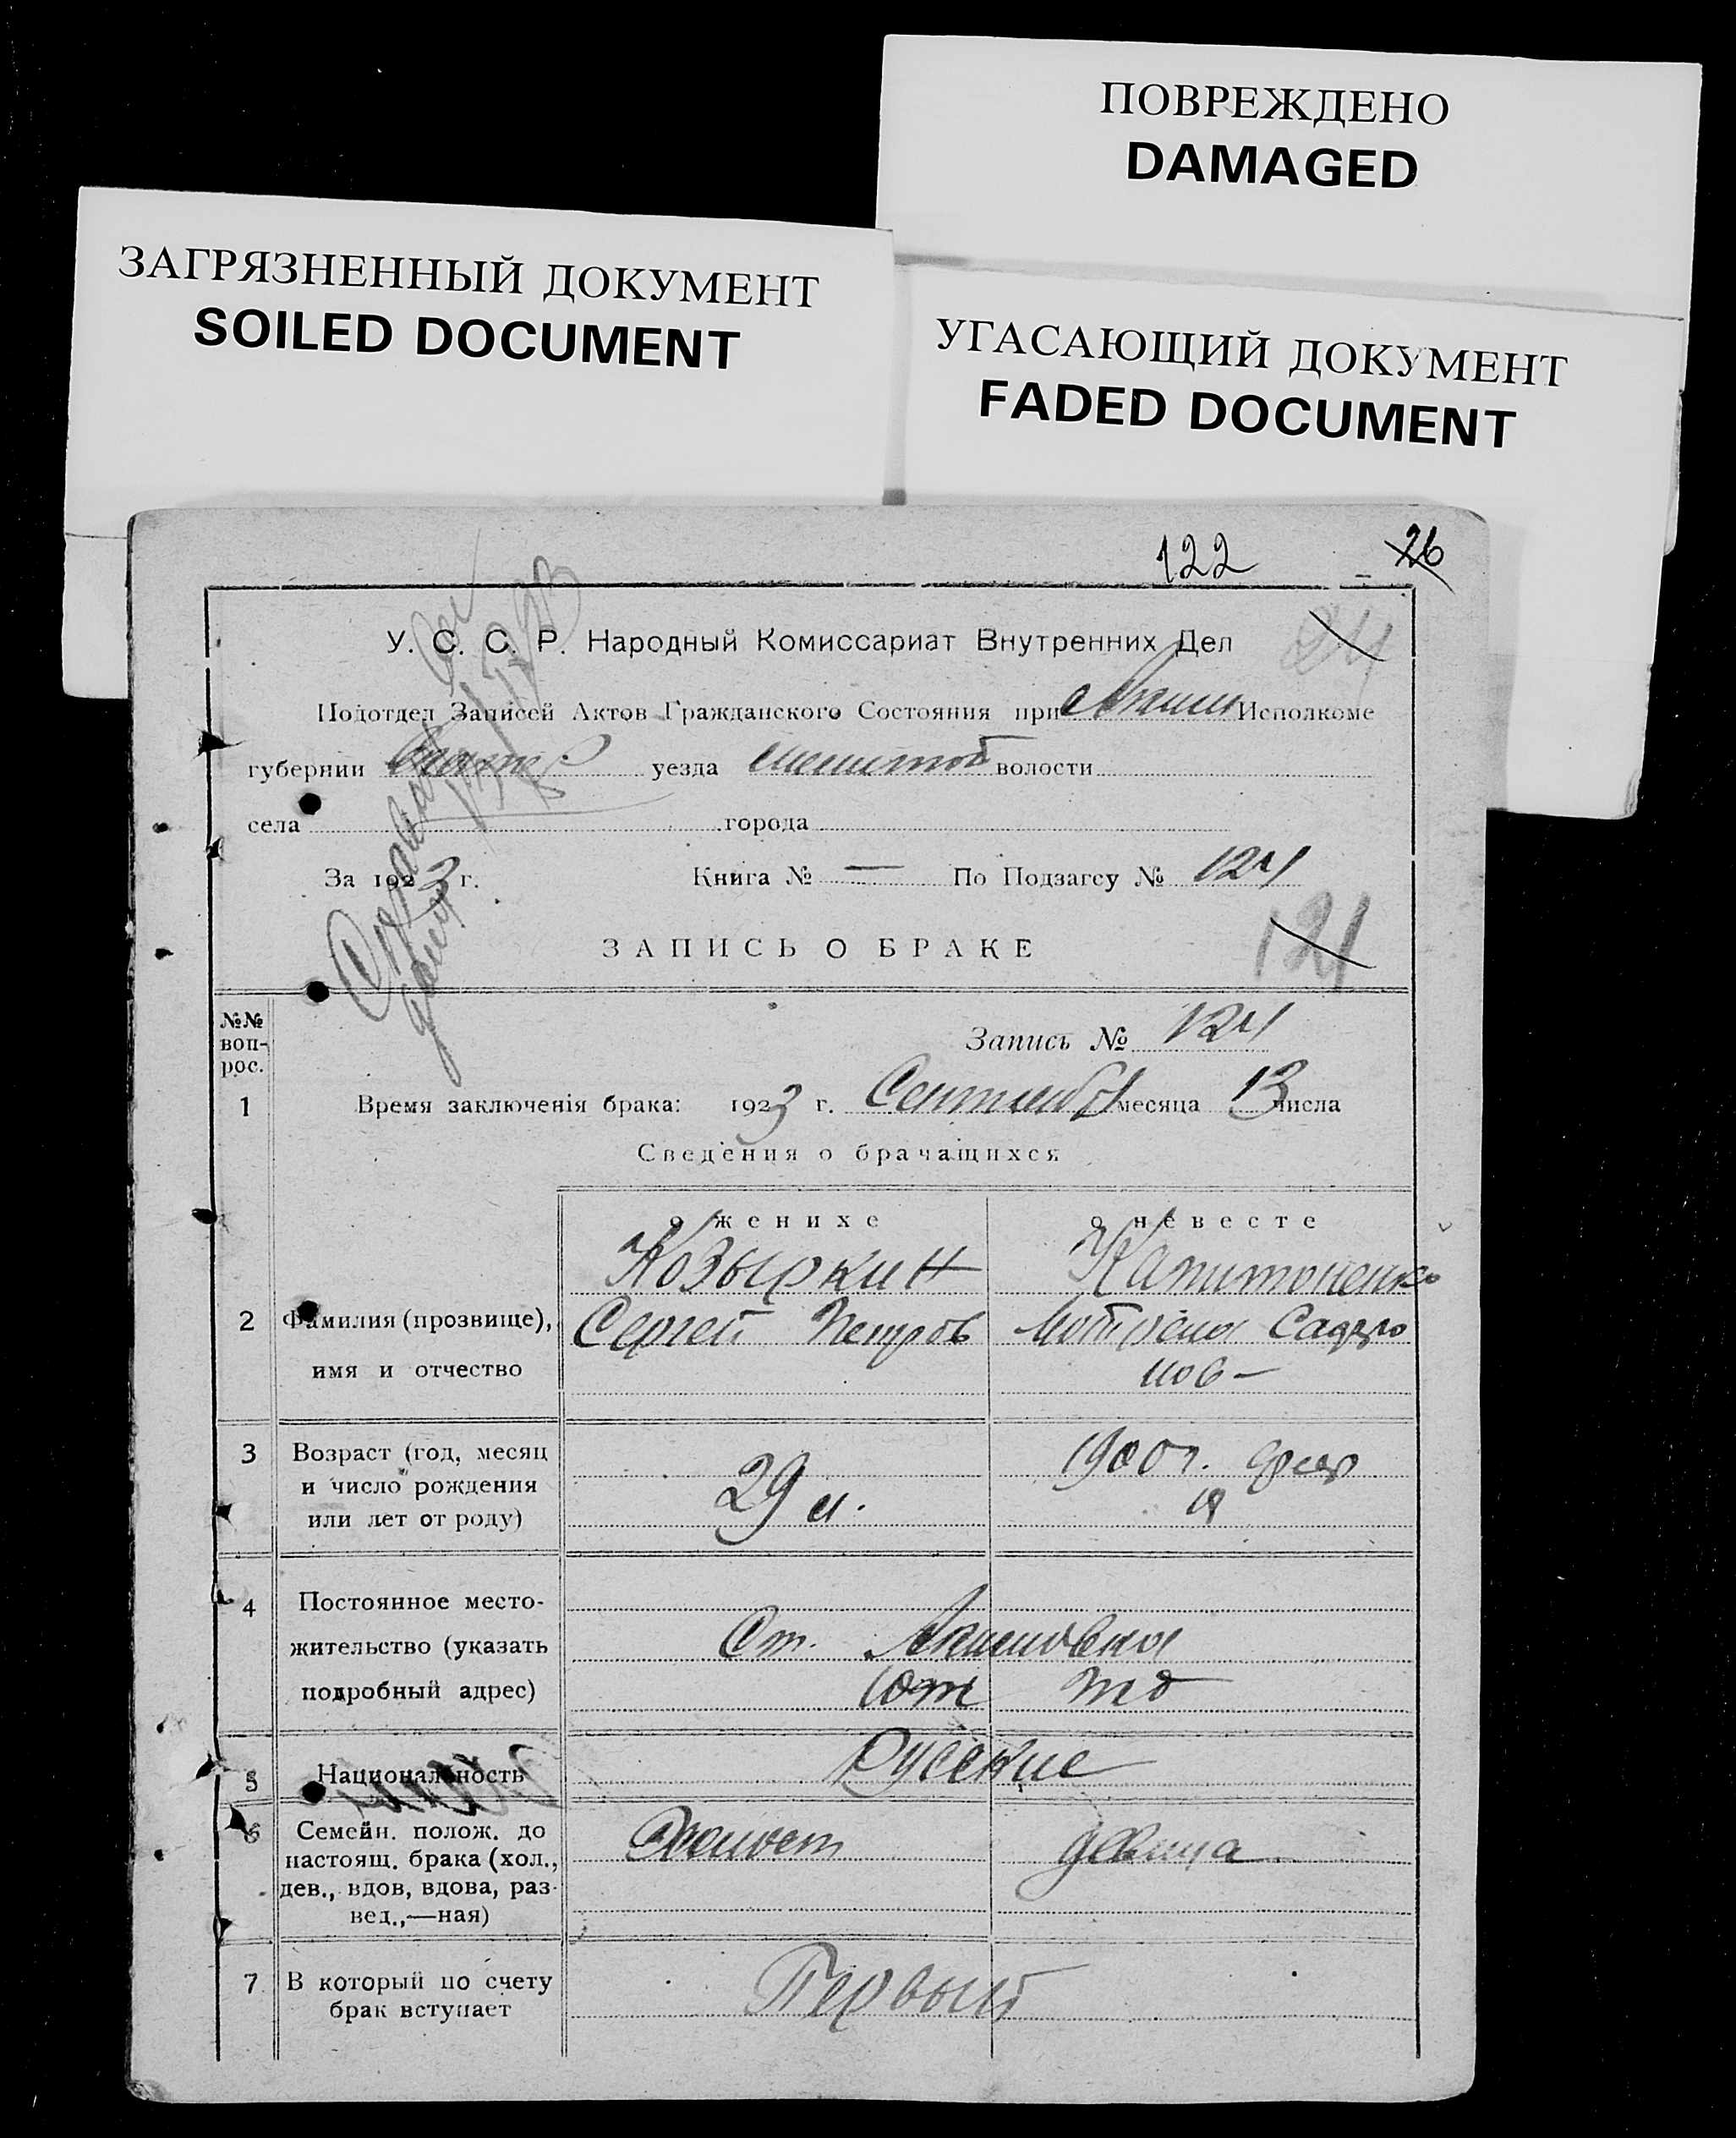 ПОВРЕЖДЕНО
DAMAGED
ЗАГРЯЗНЕННЫЙ ДОКУМЕНТ
SOILED DOCUMENT
УГАСАЮЩИЙ ДОКУМЕНТ
FADED DOCUMENT
122 26
У. С. С. Р. Народный Комиссариат Внутренних Дел 24
Подотдел Записей Актов Гражданского Состояния при Аким Исполкоме
губернии уезда волости
села города
За 1923 г. Книга № — По Подзагсу № 124
ЗАПИСЬ О БРАКЕ 121
№№ воп-
рос.
Запись № 124
1 Время заключенія брака: 1923 г. Сентября месяца 13 числа
Сведения о брачащихся
о женихе о невесте
Козыркин Капитоненко
2 Фамилия (прозвище), Сергей Петров
имя и отчество нов –
3 Возраст (год, месяц 1900 г.
и число рождения 29 л.
или лет от роду)
4 Постоянное место-
жительство (указать Ст. Акимовка
подробный адрес)
5 Национальность Русские
6 Семейн. полож. до
настоящ. брака (хол., девица
дев., вдов, вдова, раз-
вед.,—ная)
7 В который по счету Первый
брак вступает